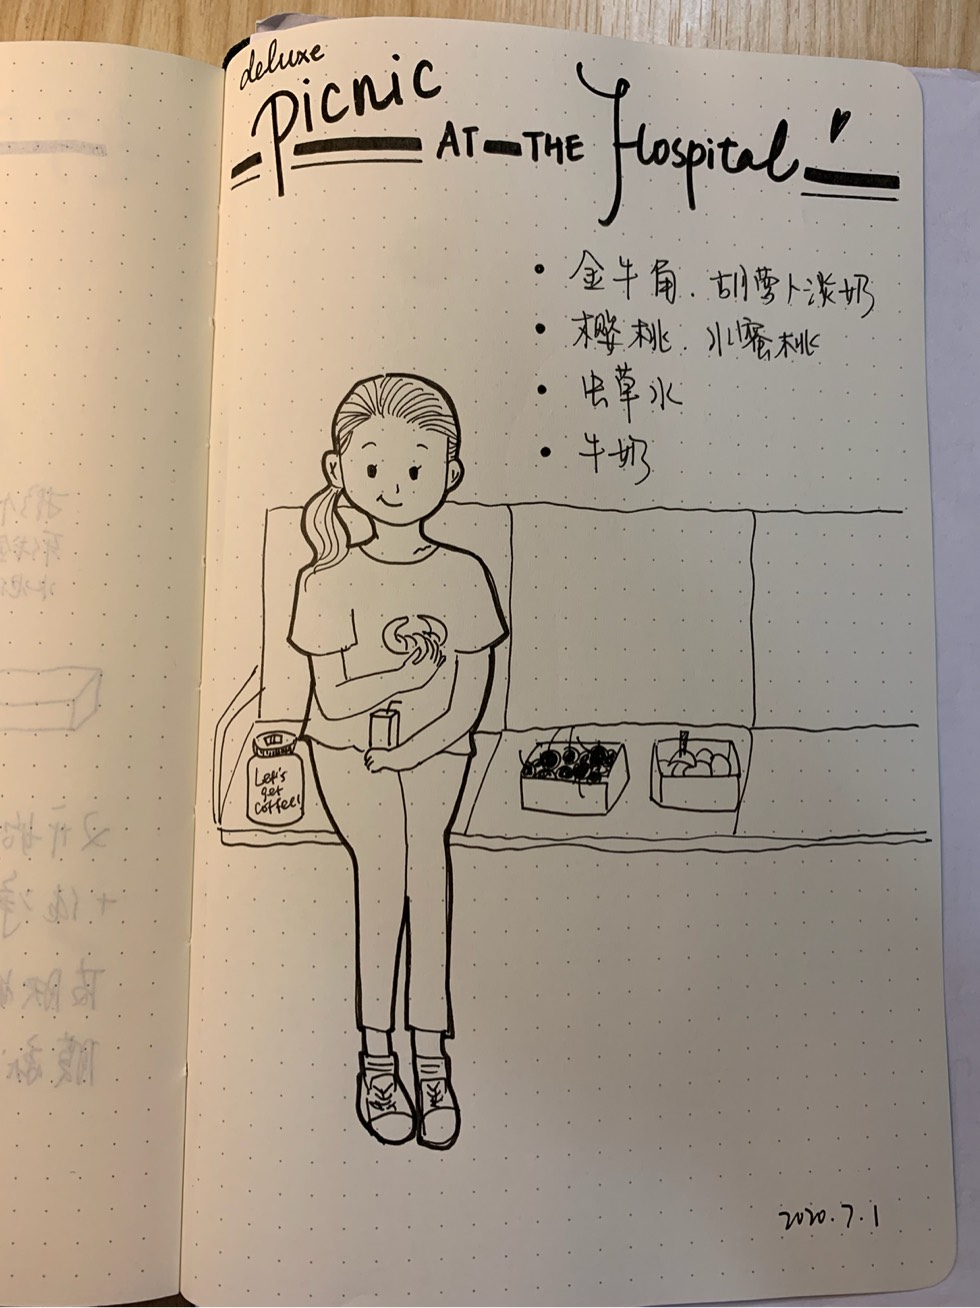 deluxe
Picnic
AT THE Hospital
• 金牛角. 胡萝卜淡奶
• 樱桃. 水蜜桃
• 虫草水
• 牛奶
Let's
get
Coffee!
2020.7.1